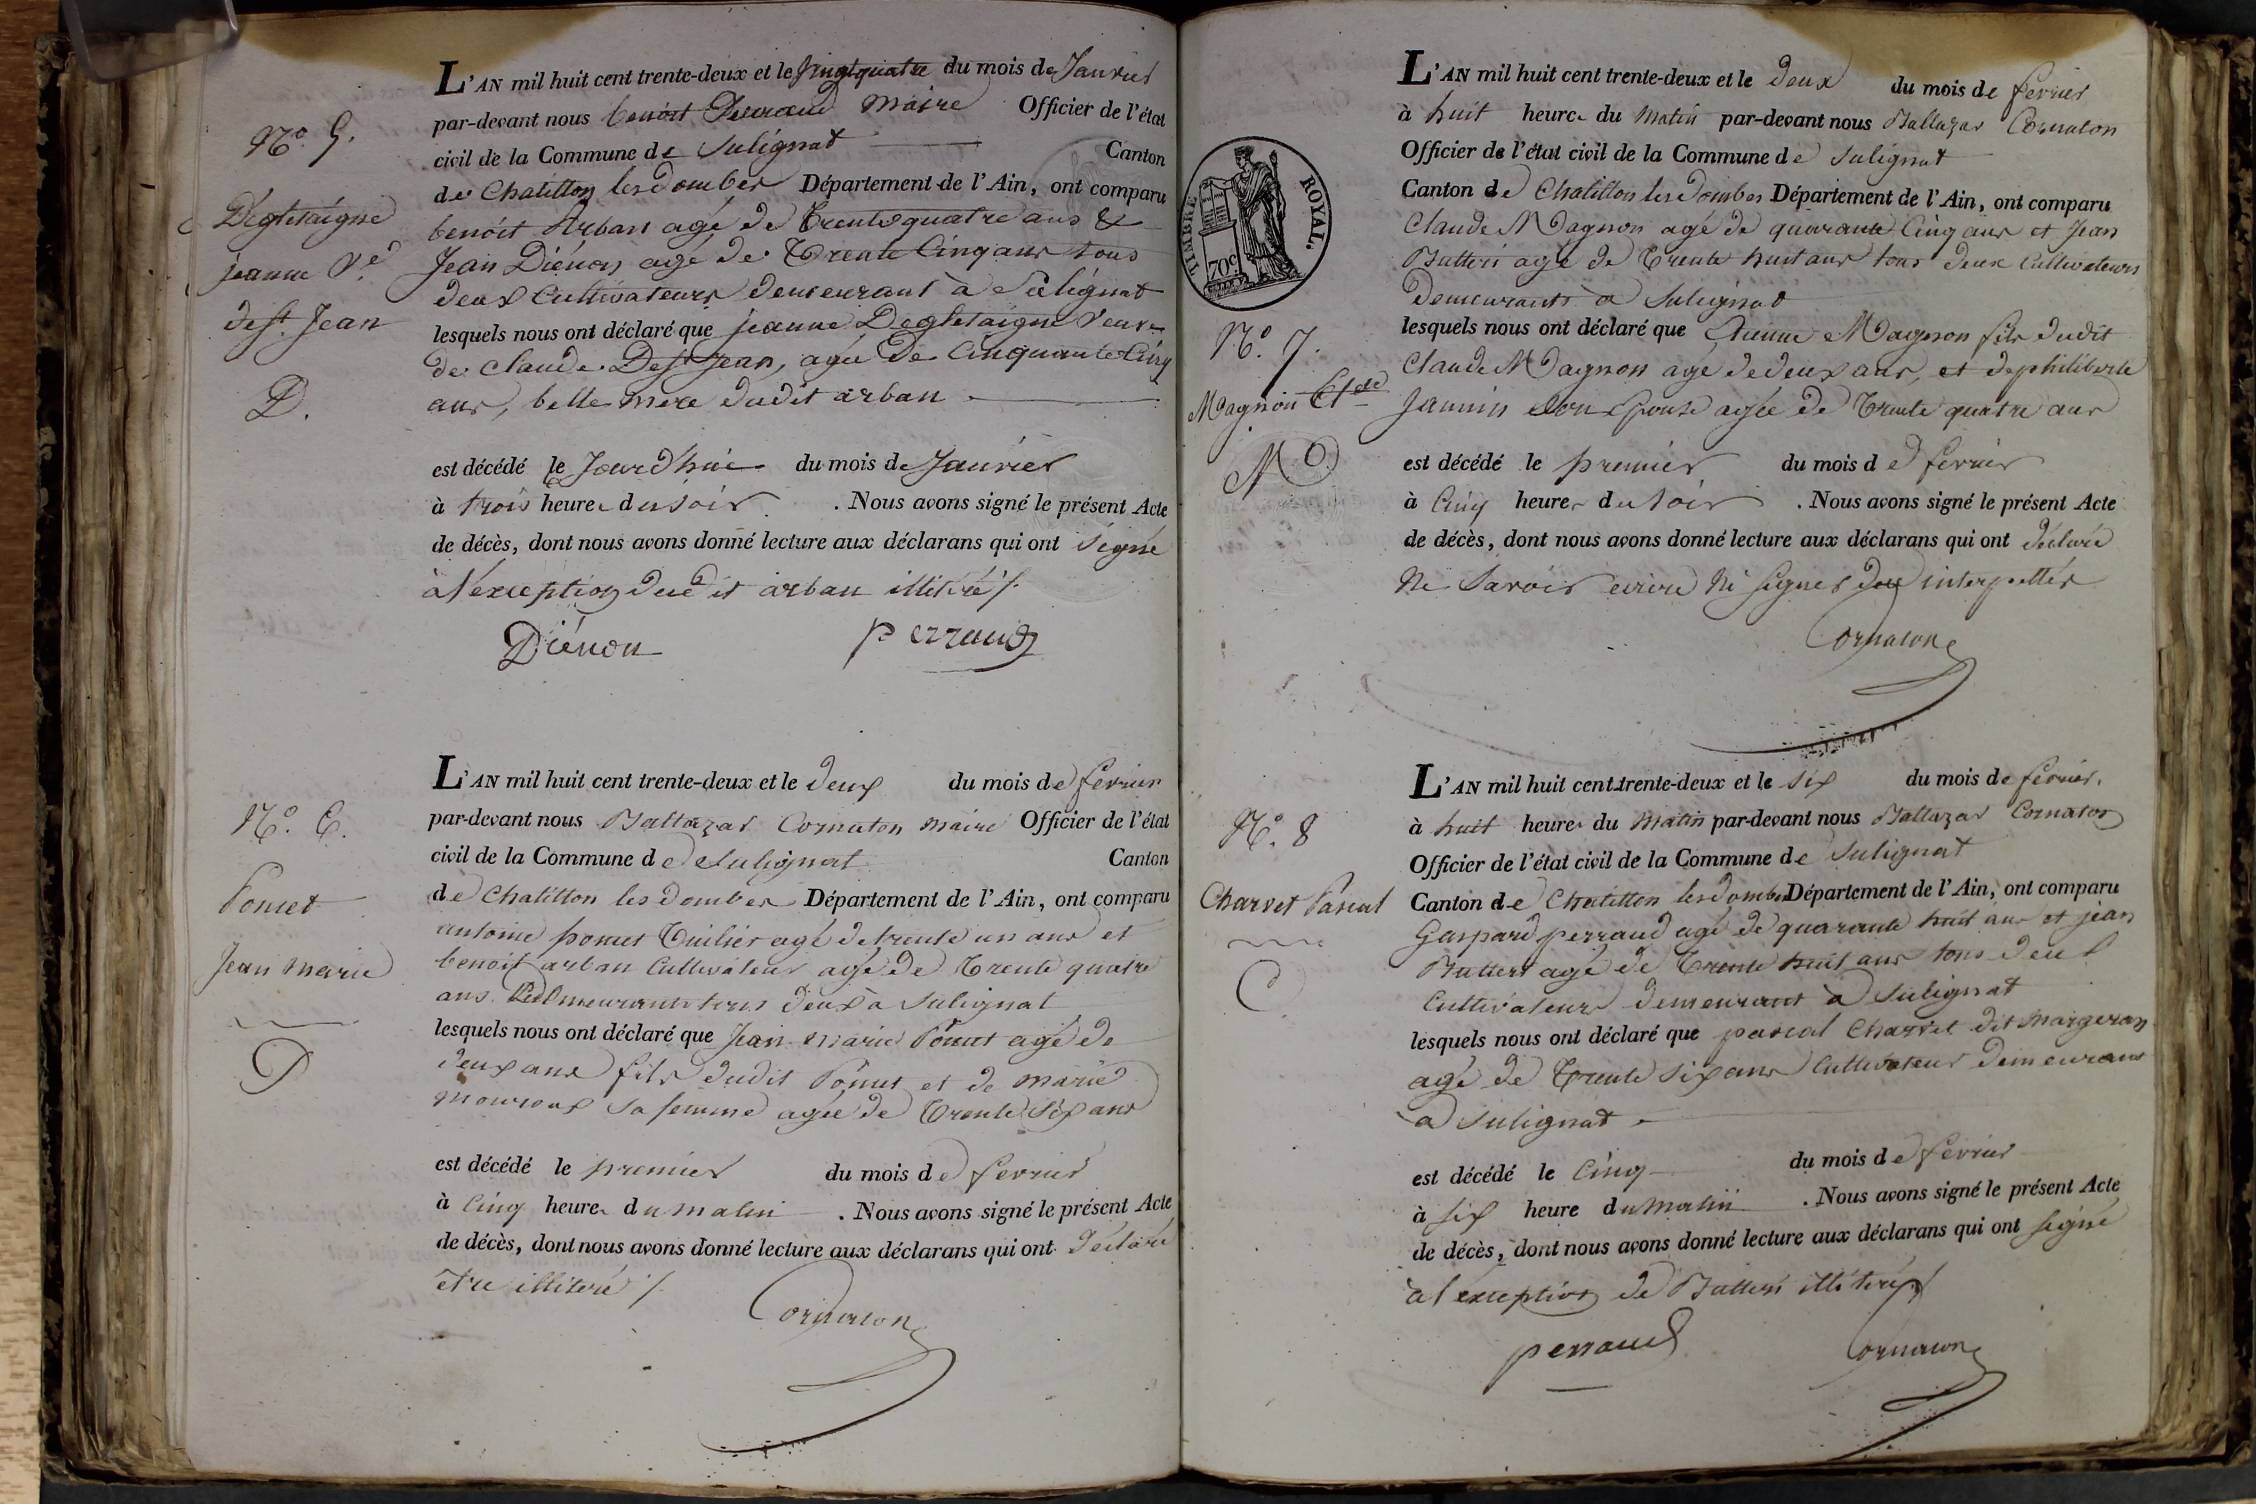 N.o 5.
Degletaigne
jeanne V.e
Dest. Jean
D.
L'AN mil huit cent trente-deux et le vingt quatre du mois de Janvier
par-devant nous benoit Perraud maire Officier de l'état
civil de la Commune de Sulignat Canton
de Chatillon les dombes Département de l'Ain, ont comparu
benoit Arban agé de Trente quatre ans &
Jean Diénon agé de Trente Cinq ans tous
deux Cultivateurs demeurant à Sulignat
lesquels nous ont déclaré que jeanne Degletaigne veuve
de Claude Dest Jean, agée de Cinquante Cinq
ans, belle mere dudit arban
est décédé le Jourd'hui du mois de Janvier
à trois heures du soir . Nous avons signé le présent Acte
de décès, dont nous avons donné lecture aux déclarans qui ont signé
à l'exception dudit arban illitéré /.
Diénon Perraud
N.o 6.
Pomet
Jean Marie
D
L'AN mil huit cent trente-deux et le deux du mois de fevrier
par-devant nous Baltazar Cornaton maire Officier de l'état
civil de la Commune de Sulignat Canton
de Chatillon les dombes Département de l'Ain, ont comparu
antoine pomet Tuilier agé de trente un ans et
benoit arban Cultivateur agé de Trente quatre
ans demeurants tous deux à Sulignat
lesquels nous ont déclaré que Jean Marie Pomet agé de
deux ans fils dudit Pomet et de Marie
mouroux sa femme agée de Trente Six ans
est décédé le premier du mois de fevrier
à Cinq heures du matin . Nous avons signé le présent Acte
de décès, dont nous avons donné lecture aux déclarans qui ont déclaré
etre illiteré /.
Cornaton
TIMBRE ROYAL.
70c
N.o 7.
Magnon Et.ne
M D
L'AN mil huit cent trente-deux et le deux du mois de fevrier
à huit heures du matin par-devant nous Baltazar Cornaton
Officier de l'état civil de la Commune de Sulignat
Canton de Chatillon les dombes Département de l'Ain, ont comparu
Claude Magnon agé de quarante Cinq ans et Jean
Butteri agé de Trente huit ans tous deux Cultivateurs
Demeurants a Sulignat
lesquels nous ont déclaré que Etienne Magnon fils dudit
Claude Magnon agé de deux ans, et de philiberte
Jannin son Epouse agée de Trente quatre ans
est décédé le premier du mois de fevrier
à Cinq heures du soir . Nous avons signé le présent Acte
de décès, dont nous avons donné lecture aux déclarans qui ont déclaré
Ne Savoir ecrire Ni Signer de interpellés
Cornaton
N.o 8
Charvet Pascal
L'AN mil huit cent trente-deux et le six du mois de fevrier.
à huit heures du Matin par-devant nous Baltazar Cornaton
Officier de l'état civil de la Commune de Sulignat
Canton de Chatillon les dombes Département de l'Ain, ont comparu
Gaspard perraud agé de quarante huit ans et jean
Butteri agé de Trente huit ans tous deux
Cultivateurs demeurant à Sulignat
lesquels nous ont déclaré que pascal Charvet dit Margeran
agé de Trente six ans Cultivateur demeurant
a Sulignat
est décédé le Cinq du mois de fevrier
à six heure du Matin . Nous avons signé le présent Acte
de décès, dont nous avons donné lecture aux déclarans qui ont signé
à l'exception de Butteri illitéré /.
perraud Cornaton